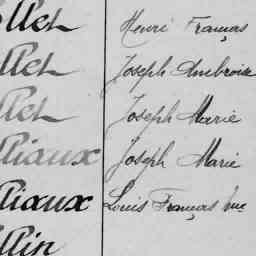 llet Henri François
llet Joseph Ambroise
llet Joseph Marie
lliaux Joseph Marie
lliaux Louis François
llin